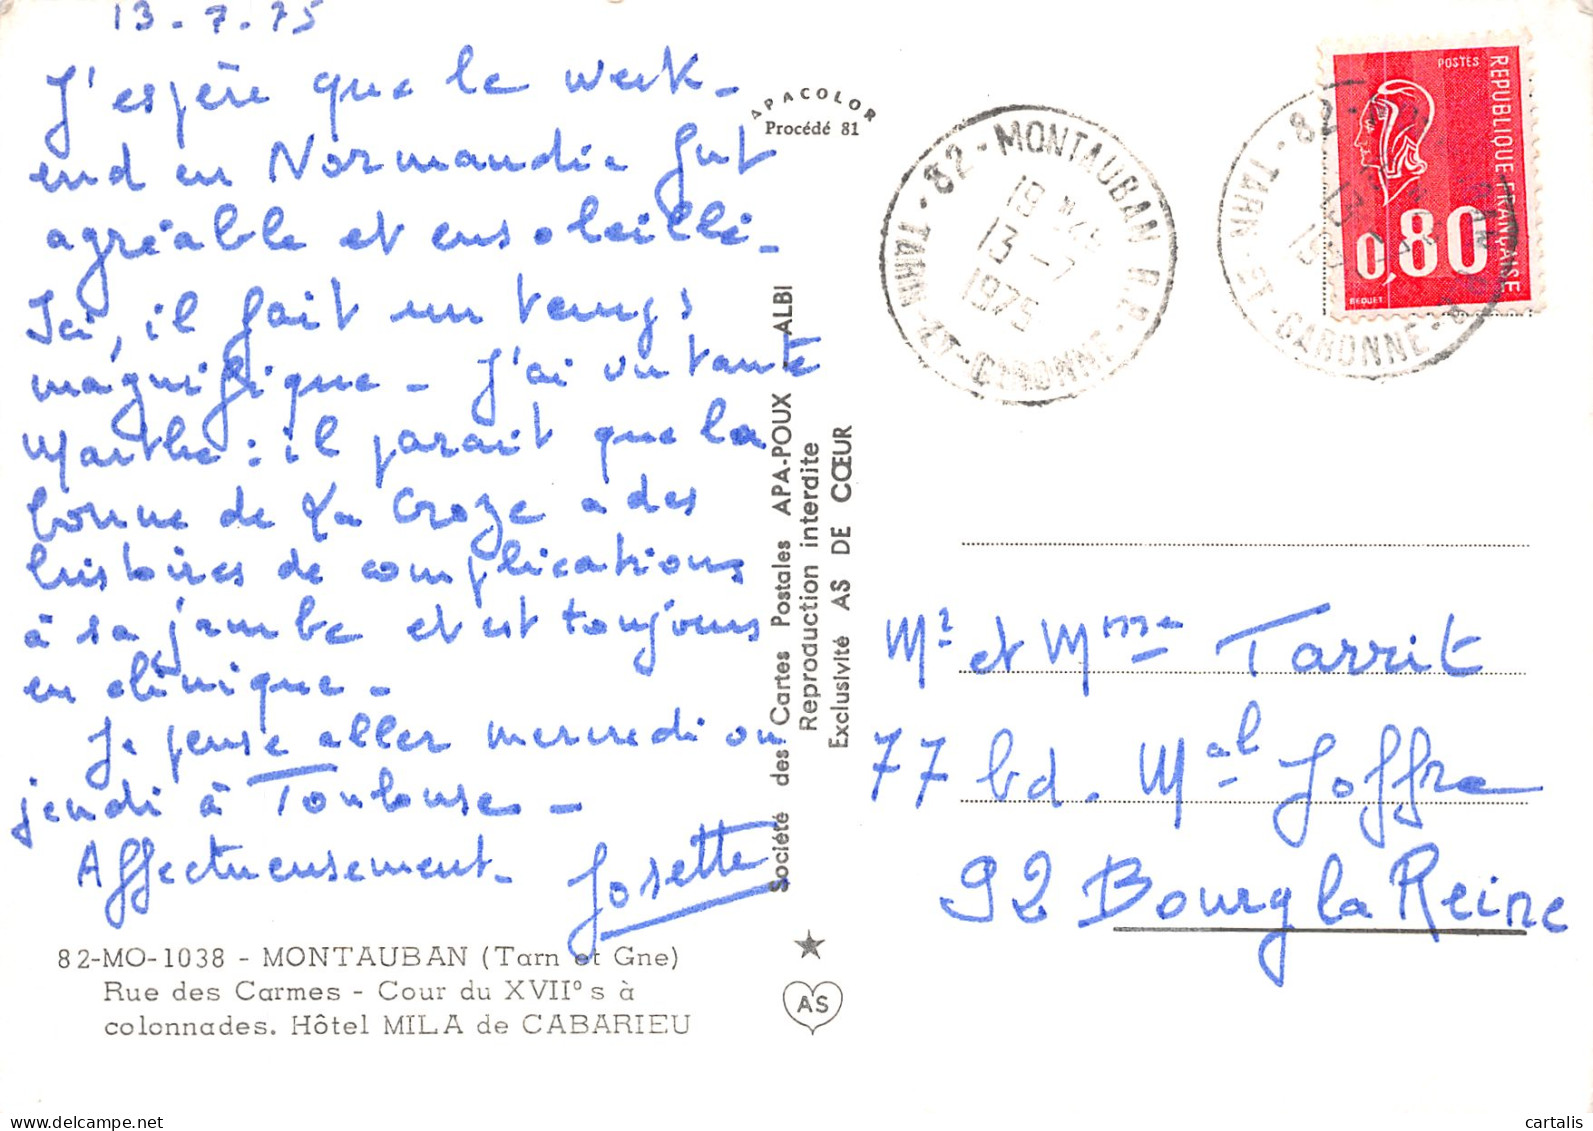 13-7-75
J'espère que le week-
end en Normandie fut
agréable et ensoleillé-
Ici, il fait un temps
magnifique - J'ai vu tante
Marthe : il parait que la
bonne de La Croze a des
histoires de complications
à sa jambe et est toujours
en clinique -
Je pense aller mercredi ou
jeudi à Toulouse -
Affectueusement - Josette
82-MO-1038 - MONTAUBAN (Tarn et Gne)
Rue des Carmes - Cour du XVII° s à
colonnades. Hôtel MILA de CABARIEU
APACOLOR
Procédé 81
Société des Cartes Postales APA-POUX ALBI
Reproduction interdite
Exclusivité AS DE CŒUR
AS
82 - MONTAUBAN R.P. -
19H
13-7
1975
TARN-ET-GARONNE
82
TARN-ET-GARONNE
POSTES
REPUBLIQUE FRANÇAISE
0,80
BEQUET
Mr et Mme Tarrit
77 bd. Mal Joffre
92 Bourg la Reine
www.delcampe.net
cartalis